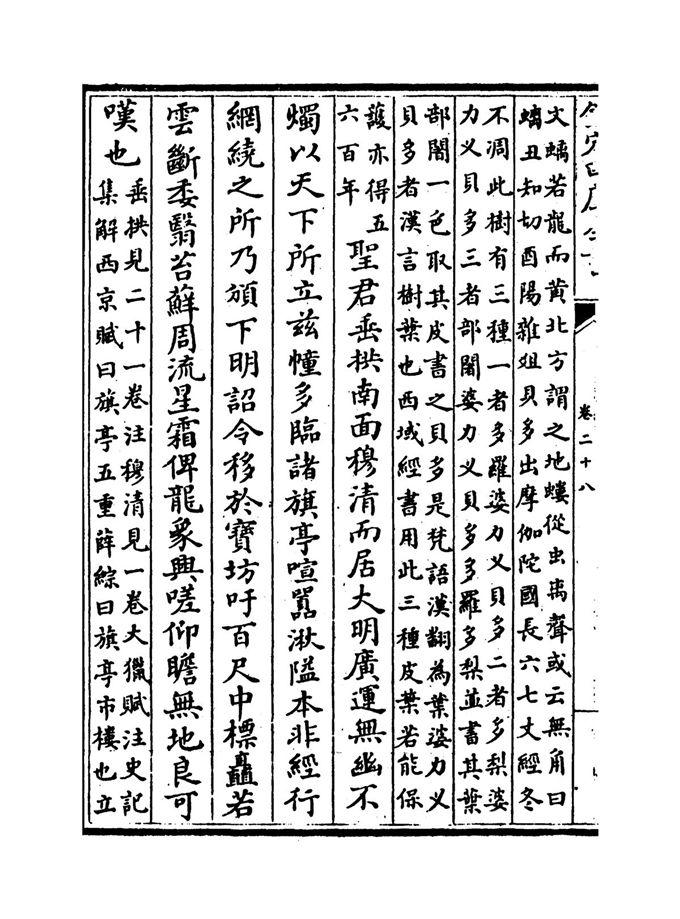 卷二十八
文螭若龍而黃北方謂之地螻從虫离聲或云無角曰
螭丑知切酉陽雜俎貝多出摩伽陀國長六七丈經冬
不凋此樹有三種一者多羅婆力义貝多二者多梨婆
力义貝多三者部闍婆力义貝多多羅多梨並書其葉
部闍一色取其皮書之貝多是梵語漢翻為葉婆力义
貝多者漢言樹葉也西域經書用此三種皮葉若能保
護亦得五
六百年
聖君垂拱南面穆清而居大明廣運無幽不
燭以天下所立兹幢多臨諸旗亭喧囂湫隘本非經行
網繞之所乃頒下明詔令移於寶坊吁百尺中標矗若
雲斷委翳苔蘚周流星霜俾龍象興嗟仰瞻無地良可
嘆也
垂拱見二十一卷注穆清見一卷大獵賦注史記
集解西京賦曰旗亭五重薛綜曰旗亭市樓也立